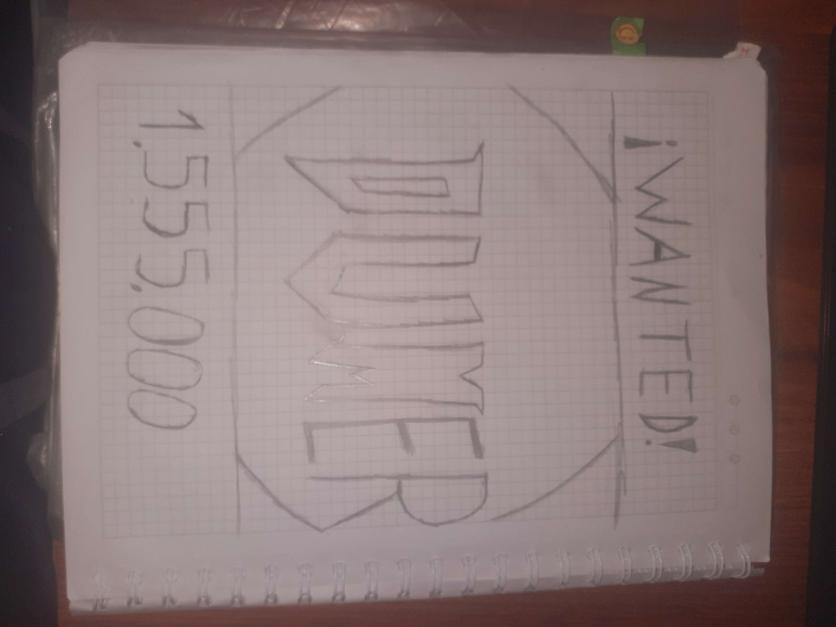 ¡WANTED!
DUMER
1.555.000